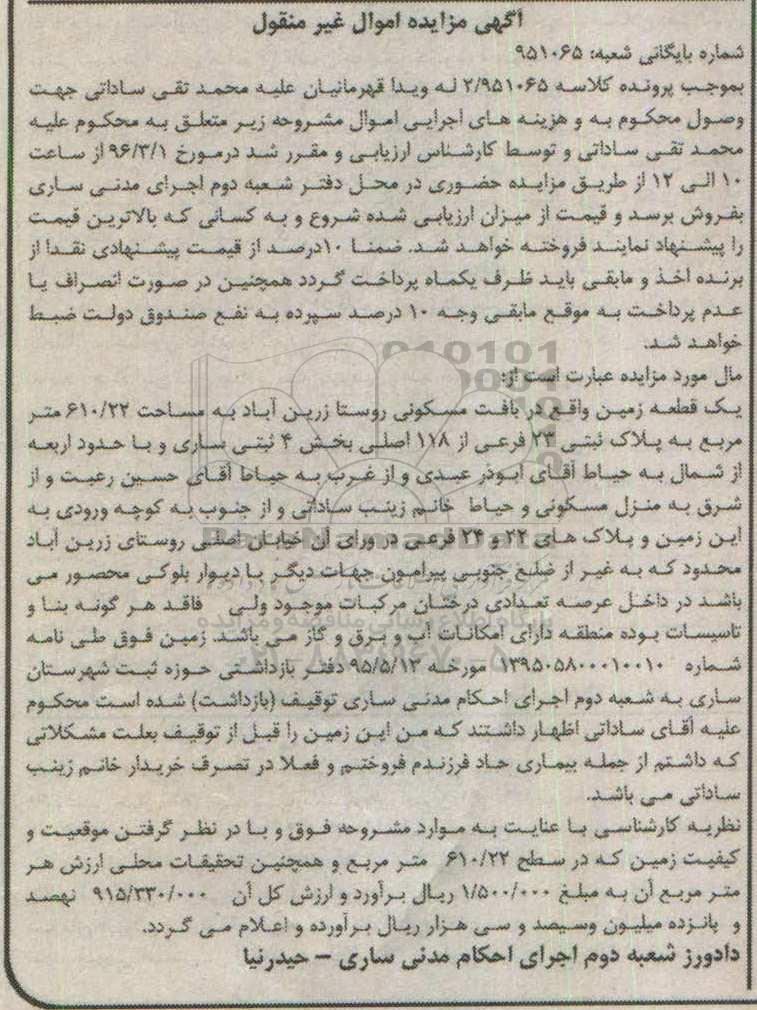 آگهی مزایده اموال غیر منقول
شماره بایگانی شعبه: ۹۵۱۰۶۵
بموجب پرونده کلاسه ۲/۹۵۱۰۶۵ له ویدا قهرمانیان علیه محمد تقی ساداتی جهت
وصول محکوم به و هزینه های اجرایی اموال مشروحه زیر متعلق به محکوم علیه
محمد تقی ساداتی و توسط کارشناس ارزیابی و مقرر شد درمورخ ۹۶/۳/۱ از ساعت
۱۰ الی ۱۲ از طریق مزایده حضوری در محل دفتر شعبه دوم اجرای مدنی ساری
بفروش برسد و قیمت از میزان ارزیابی شده شروع و به کسانی که بالاترین قیمت
را پیشنهاد نمایند فروخته خواهد شد. ضمنا ۱۰درصد از قیمت پیشنهادی نقدا از
برنده اخذ و مابقی باید ظرف یکماه پرداخت گردد همچنین در صورت انصراف یا
عدم پرداخت به موقع مابقی وجه ۱۰ درصد سپرده به نفع صندوق دولت ضبط
خواهد شد.
مال مورد مزایده عبارت است از:
یک قطعه زمین واقع در بافت مسکونی روستا زرین آباد به مساحت ۶۱۰/۲۲ متر
مربع به پلاک ثبتی ۲۳ فرعی از ۱۱۸ اصلی بخش ۴ ثبتی ساری و با حدود اربعه
از شمال به حیاط آقای ابوذر عبدی و از غرب به حیاط آقای حسین رعیت و از
شرق به منزل مسکونی و حیاط خانم زینب ساداتی و از جنوب به کوچه ورودی به
این زمین و پلاک های ۲۲ و ۲۴ فرعی در ورای آن خیابان اصلی روستای زرین آباد
محدود که به غیر از ضلع جنوبی پیرامون جهات دیگر با دیوار بلوکی محصور می
باشد در داخل عرصه تعدادی درختان مرکبات موجود ولی فاقد هر گونه بنا و
تاسیسات بوده منطقه دارای امکانات آب و برق و گاز می باشد. زمین فوق طی نامه
شماره ۱۳۹۵۰۵۸۰۰۰۱۰۰۱۰ مورخه ۹۵/۵/۱۳ دفتر بازداشتی حوزه ثبت شهرستان
ساری به شعبه دوم اجرای احکام مدنی ساری توقیف (بازداشت) شده است محکوم
علیه آقای ساداتی اظهار داشتند که من این زمین را قبل از توقیف بعلت مشکلاتی
که داشتم از جمله بیماری حاد فرزندم فروختم و فعلا در تصرف خریدار خانم زینب
ساداتی می باشد.
نظریه کارشناسی با عنایت به موارد مشروحه فوق و با در نظر گرفتن موقعیت و
کیفیت زمین که در سطح ۶۱۰/۲۲ متر مربع و همچنین تحقیقات محلی ارزش هر
متر مربع آن به مبلغ ۱/۵۰۰/۰۰۰ ریال برآورد و ارزش کل آن ۹۱۵/۳۳۰/۰۰۰ نهصد
و پانزده میلیون وسیصد و سی هزار ریال برآورده و اعلام می گردد.
دادورز شعبه دوم اجرای احکام مدنی ساری - حیدرنیا